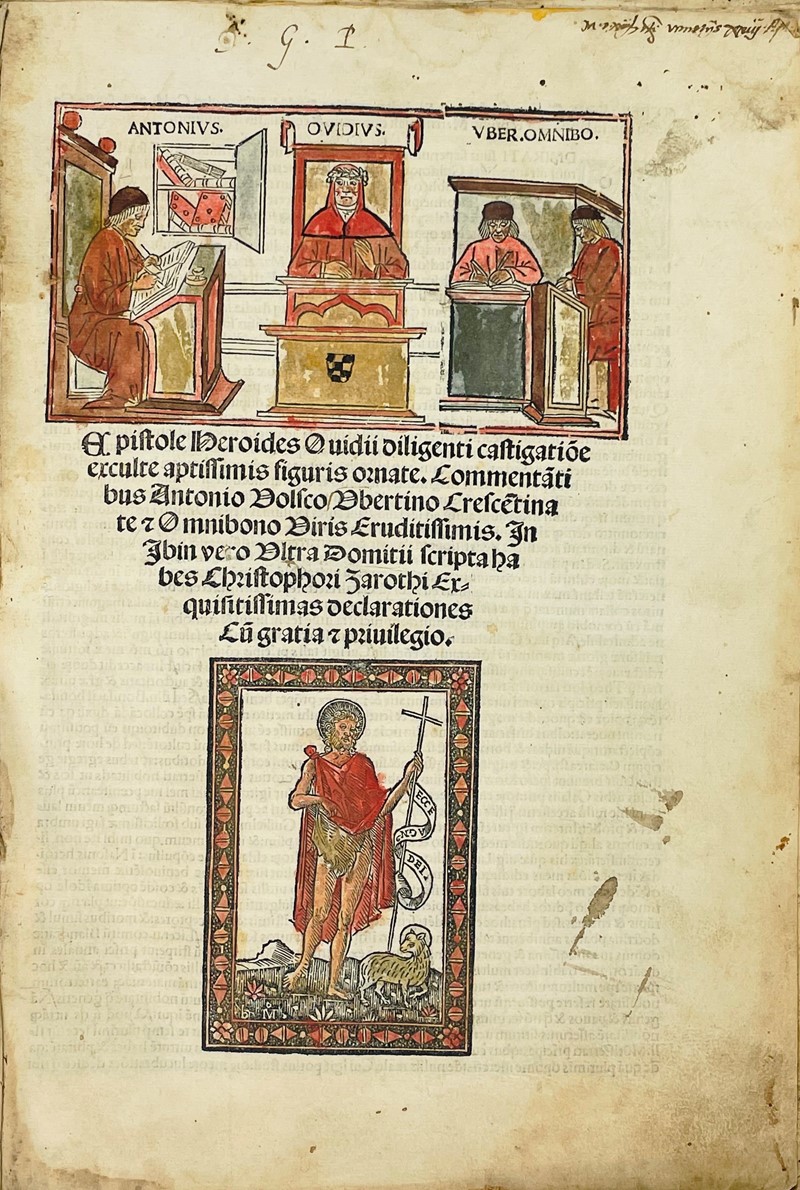 G. I.
ANTONIVS.
OVIDIVS.
VBER.OMNIBO.
Epistole Heroides Ouidii diligenti castigatiōe
exculte aptissimis figuris ornate. Commentāti
bus Antonio Volsco/Vbertino Crescētina
te ⁊ Omnibono Viris Eruditissimis. In
Ibin vero Vltra Domitii scripta ha
bes Christophori Zarothi Ex⸗
quisitissimas declarationes
Cū gratia ⁊ priuilegio.
ECCE
AGNV
DEI.
b M